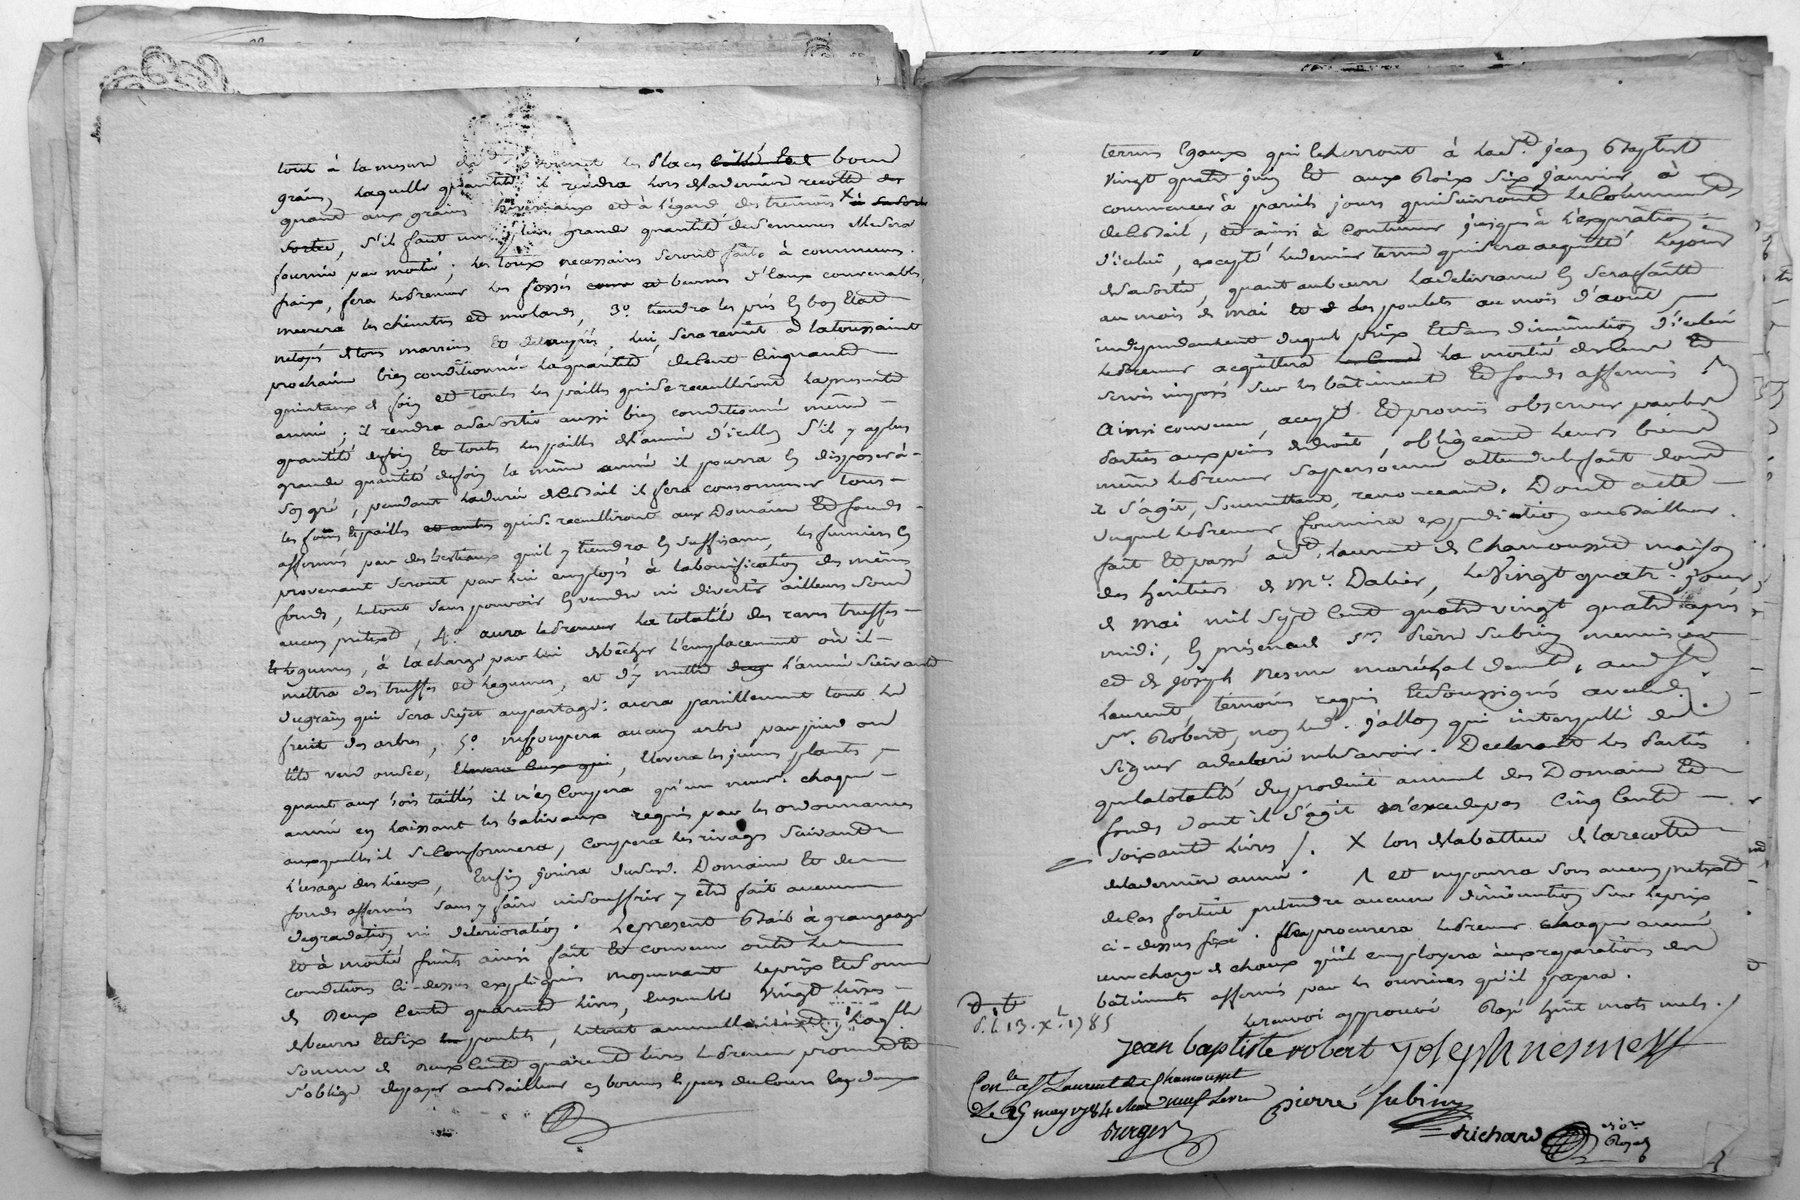 tout à la mesure de les places bour
grains, laquelle quantité il rendra lors de la derniere recolte des
quand aux grains hivernaux et à l'egard des tremois X à sa sortie
sortie, s'il faut une plus grande quantité de semences Elle sera
fournie par moitié, les toux necessaires seront faits à communs
fraix, fera le preneur les fossés comme et bernes d'eaux convenables,
menera les cheintres et molards, 3.o tiendra les prés en bon Etat
netoyés de tous marrains et detaupés, lui sera remit à la toussaint
prochaine bien conditionné la quantité de cent cinquante
quintaux de foin et toutes les pailles qui se recueilliront la presente
année; il rendra à sa sortie aussi bien conditionné même
quantité de foin Et toutes les pailles de l'année d'icelle, s'il y a plus
grande quantité de foin la même année il pourra en disposer à
son gré, pendant la durée du bail il fera consommer tous
les foins et pailles et autres qui se recueilliront aux Domaine Et fonds
affermés par des bestiaux qu'il y tiendra en suffisance, les fumiers en
provenant seront par lui employés à la bonification des mêmes
fonds, le tout sans pouvoir en vendre ni divertir ailleurs sous
aucun pretexte, 4.o aura le preneur la totalité des raves truffes
et legumes, à la charge par lui de bêcher l'emplacement où il
mettra des truffes et legumes, et d'y mettre l'année suivante
du grain qui sera sujet au partage: aura pareillement tout le
fruit des arbres, 5.o ne coupera aucun arbre par pied ou
tête verd ou sec, Elevera ceux qui, Elevera les jeunes plants,
quant aux bois taillés il n'en coupera qu'un chaque
année en laissant les balivaux requis par les ordonnances
auxquelles il se conformera, coupera les rivages suivant
l'usage des lieux, Enfin jouira du Domaine Et de
fonds affermés sans y faire ni souffrir y être fait aucune
degradation ni deterioration. Le present Bail à grangeage
Et à moitié fruits ainsi fait Et convenu outre les
conditions ci-dessus expliquées moyennant le prix Et somme
de deux cents quarante livres, Ensemble vingt livres
de beurre Et six poulets, le tout annuellement
somme de deux cents quarante livres le preneur promet Et
s'oblige de payer au Bailleur en bonnes especes du cours en deux
termes Egaux qui Echerront à la S.t jean Baptiste
vingt quatre juin Et aux Roix six janvier, à
commencer à pareils jours qui suivront le commencement
de ce Bail, Et ainsi à continuer jusques à l'expiration
d'icelui, excepté le dernier terme qui sera acquitté le jour
de sa sortie, quant au beurre la delivrance en sera faite
au mois de mai et les poulets au mois d'aout
independamment duquel prix Et sans diminution d'icelui
le preneur acquittera la moitié des cens Et
servis imposés sur les bâtiments Et fonds affermés
Ainsi convenu, accepté Et promis observer par les
Parties aux peines de droit, obligeant leurs biens
même le preneur sa personne attendu le fait dont
il s'agit, soumettant, renonceant. Dont acte
duquel le preneur fournira expedition au Bailleur.
fait Et passé à S.t Laurent de Chamousset maison
des heritiers de M.r Dalier, le vingt quatre jour
de mai mil sept cent quatre vingt quatre après
midi, En presence de s.r Pierre Subrin menuisier
et de joseph nesme marechal demeurants aud. S.t
Laurent temoins requis Et soussignés avec led.
s.r Robert, non led. jallon qui interpellé de
signer a declaré ne le savoir. Declarant les Parties
que la totalité du produit annuel des Domaine Et
fonds dont il s'agit n'excede pas Cinq Cents
soixante livres /. X lors de la batture de la recolte
de la derniere année. 1 et ne pourra sous aucun pretexte
de cas fortuit pretendre aucune diminution sur le prix
ci-dessus fixé. procurera le preneur chaque année
une charge de chaux qu'il employera aux reparations des
bâtiments affermés par les ouvriers qu'il payera.
le renvoi approuvé Rayé huit mots nuls./
13. X.e 1785
jean baptiste robert joseph nesme
Con.lé a S.t Laurent de Chamousset
Le 25 may 1784 Pierre Subrin
Richard